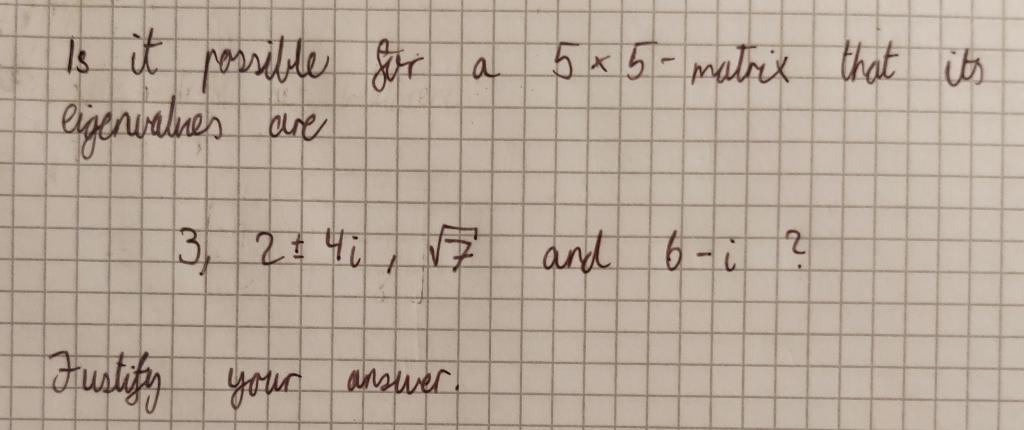 Is it possible for a 5×5-matrix that its
eigenvalues are
3, 2±4i, √7 and 6-i ?
Justify your answer.